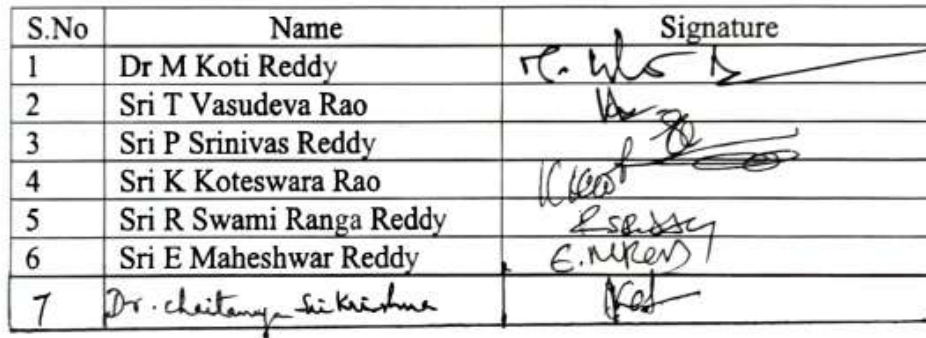 S.No Name Signature
1 Dr M Koti Reddy
2 Sri T Vasudeva Rao
3 Sri P Srinivas Reddy
4 Sri K Koteswara Rao
5 Sri R Swami Ranga Reddy
6 Sri E Maheshwar Reddy
7 Dr. Chaitanya Sri Krishna